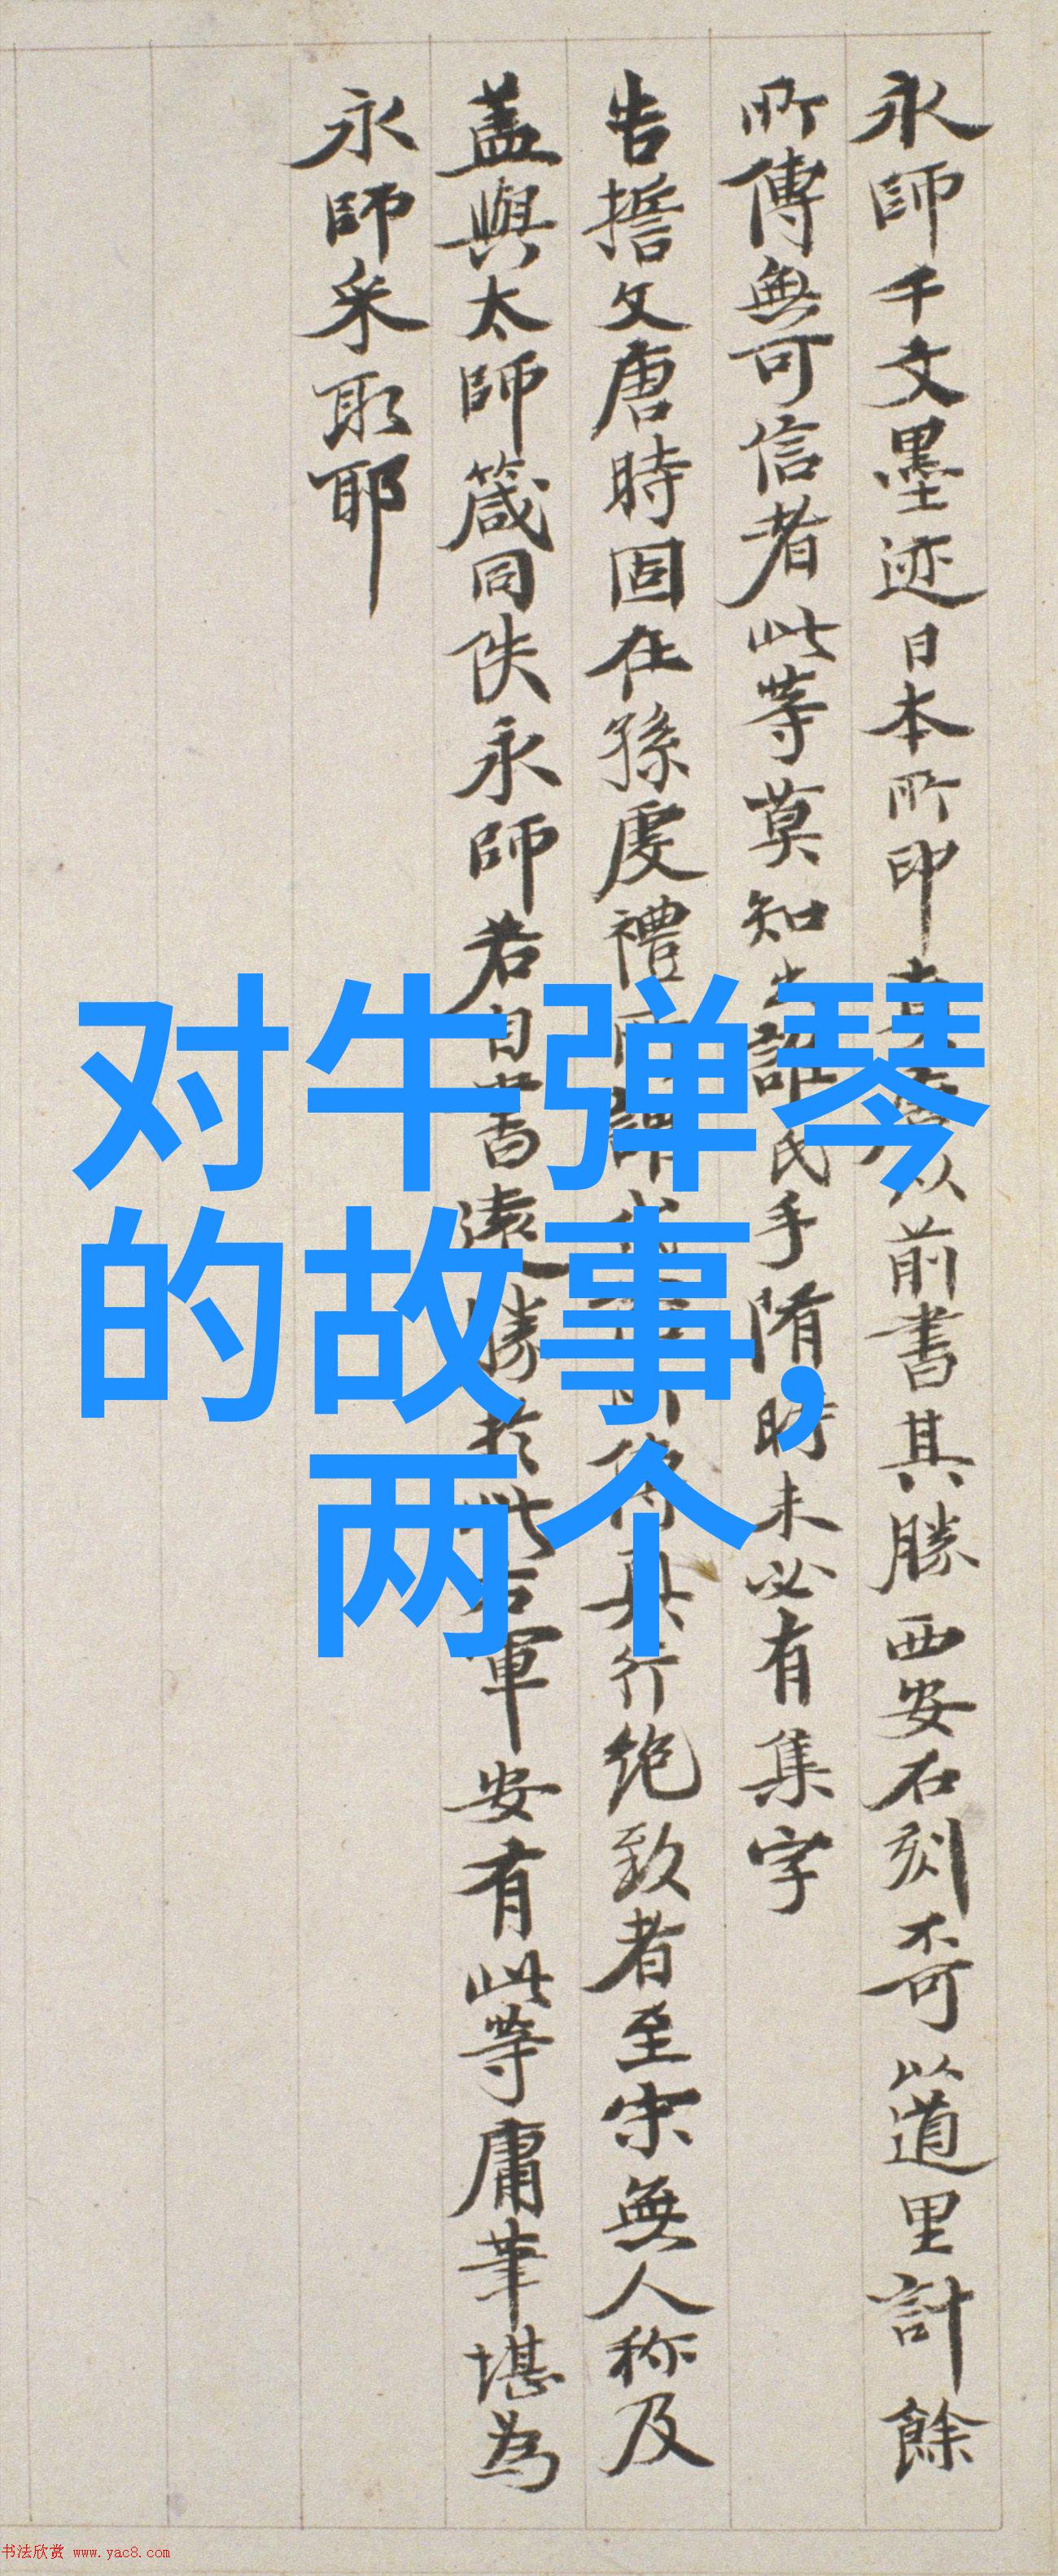 对牛弹琴
的故事,
两个
永師千文墨迹日本所印 前書其勝西安石刻奇以道里計餘
所傳無可信者此等莫知出誰氏手隋時未必有集字
告擔文唐時固在孫虔禮 真行绝致者至宋無人称及
盖與太師箴同佚永師若自書遠勝於此右軍安有此等庸筆堪為
永師采取耶
书法欣赏 www.yac8.com